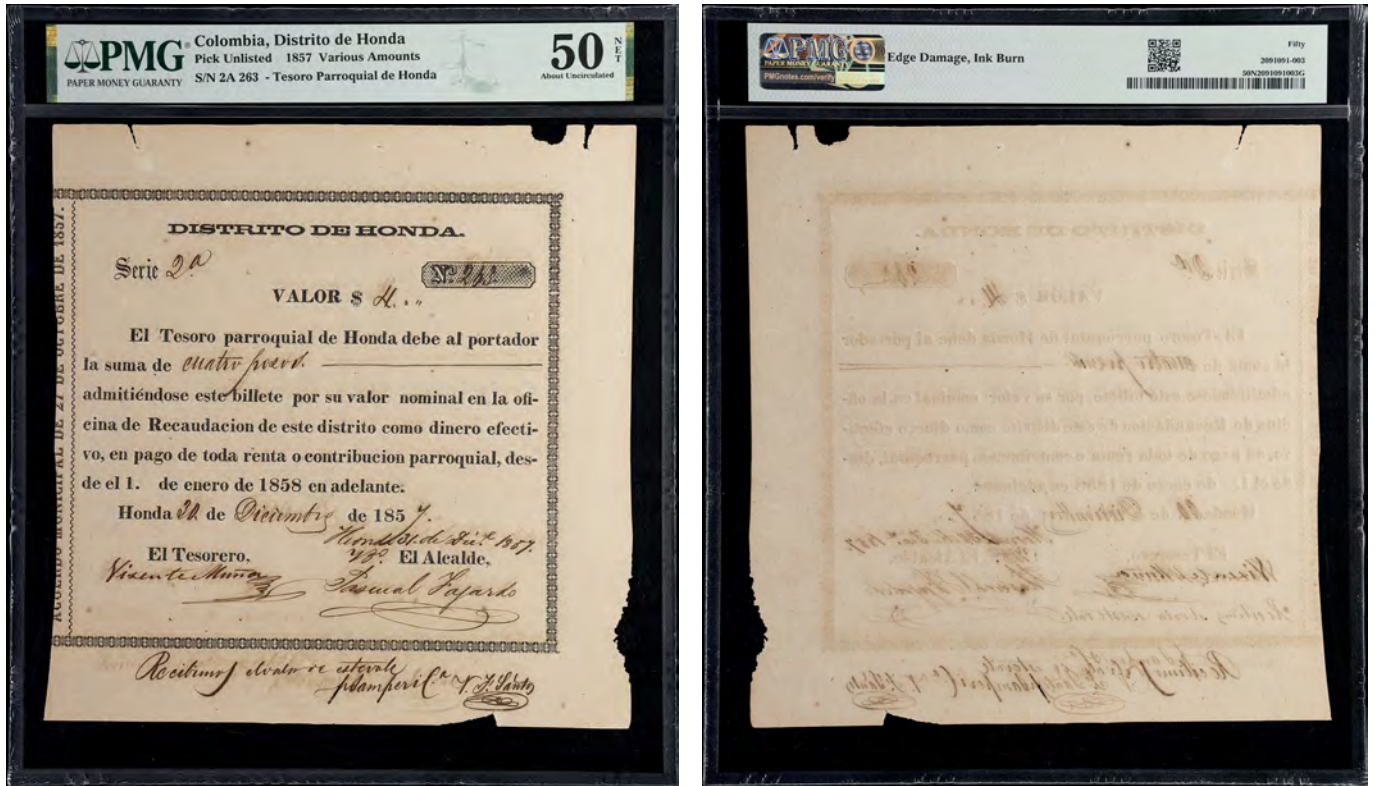 PMG
PAPER MONEY GUARANTY
Colombia, Distrito de Honda
Pick Unlisted 1857 Various Amounts
S/N 2A 263 - Tesoro Parroquial de Honda
50 NET
About Uncirculated
ACUERDO MUNICIPAL DE 27 DE OCTUBRE DE 1857.
DISTRITO DE HONDA.
Serie 2a
No. 263
VALOR $ 4..
El Tesoro parroquial de Honda debe al portador
la suma de cuatro pesos.
admitiéndose este billete por su valor nominal en la ofi-
cina de Recaudacion de este distrito como dinero efecti-
vo, en pago de toda renta o contribucion parroquial, des-
de el 1. de enero de 1858 en adelante.
Honda 30 de Diciembre de 1857.
Honda 31 de Dic.e 1857.
El Tesorero,
Vo. Bo. El Alcalde,
Vicente Muñoz
Pascual Fajardo
Recibimos el valor de este vale
V. F. Santo
PMG
PAPER MONEY GUARANTY
PMGnotes.com/verify
Edge Damage, Ink Burn
Fifty
2091091-003
50N2091091003G